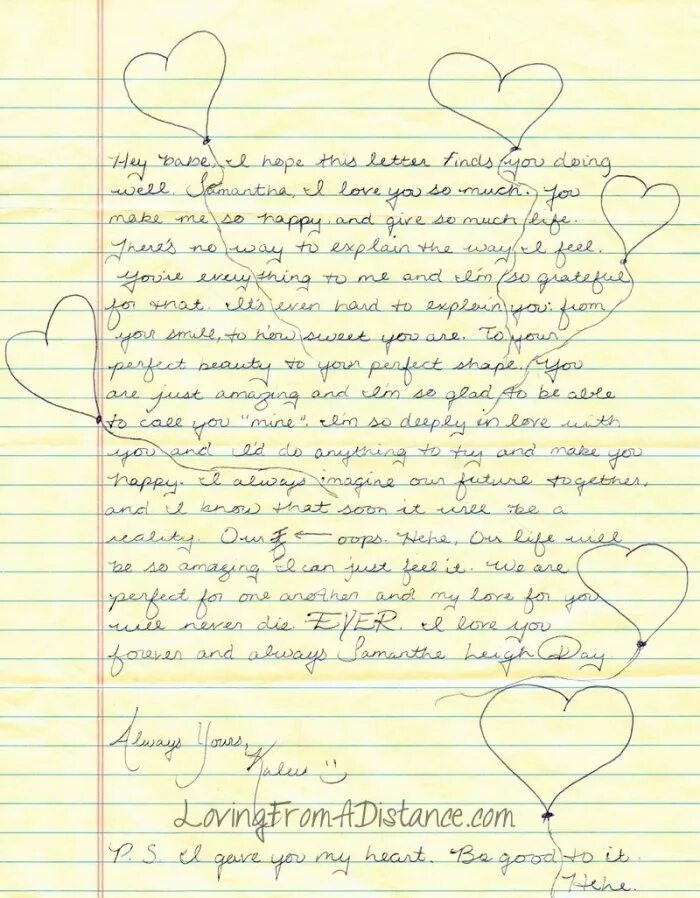 Hey babe, I hope this letter finds you doing
well. Samantha, I love you so much. You
make me so happy and give so much life.
There's no way to explain the way I feel.
You're everything to me and I'm so grateful
for that. It's even hard to explain you: from
your smile, to how sweet you are. To your
perfect beauty to your perfect shape. You
are just amazing and I'm so glad to be able
to call you "mine". I'm so deeply in love with
you and I'd do anything to try and make you
happy. I always imagine our future together,
and I know that soon it will be a
reality. Our ← oops. Hehe, Our life will
be so amazing I can just feel it. We are
perfect for one another and my love for you
will never die. EVER. I love you
forever and always Samantha Leigh Day
Always Yours,
Kaleu
LovingFromADistance.com
P.S. I gave you my heart. Be good to it.
Hehe.